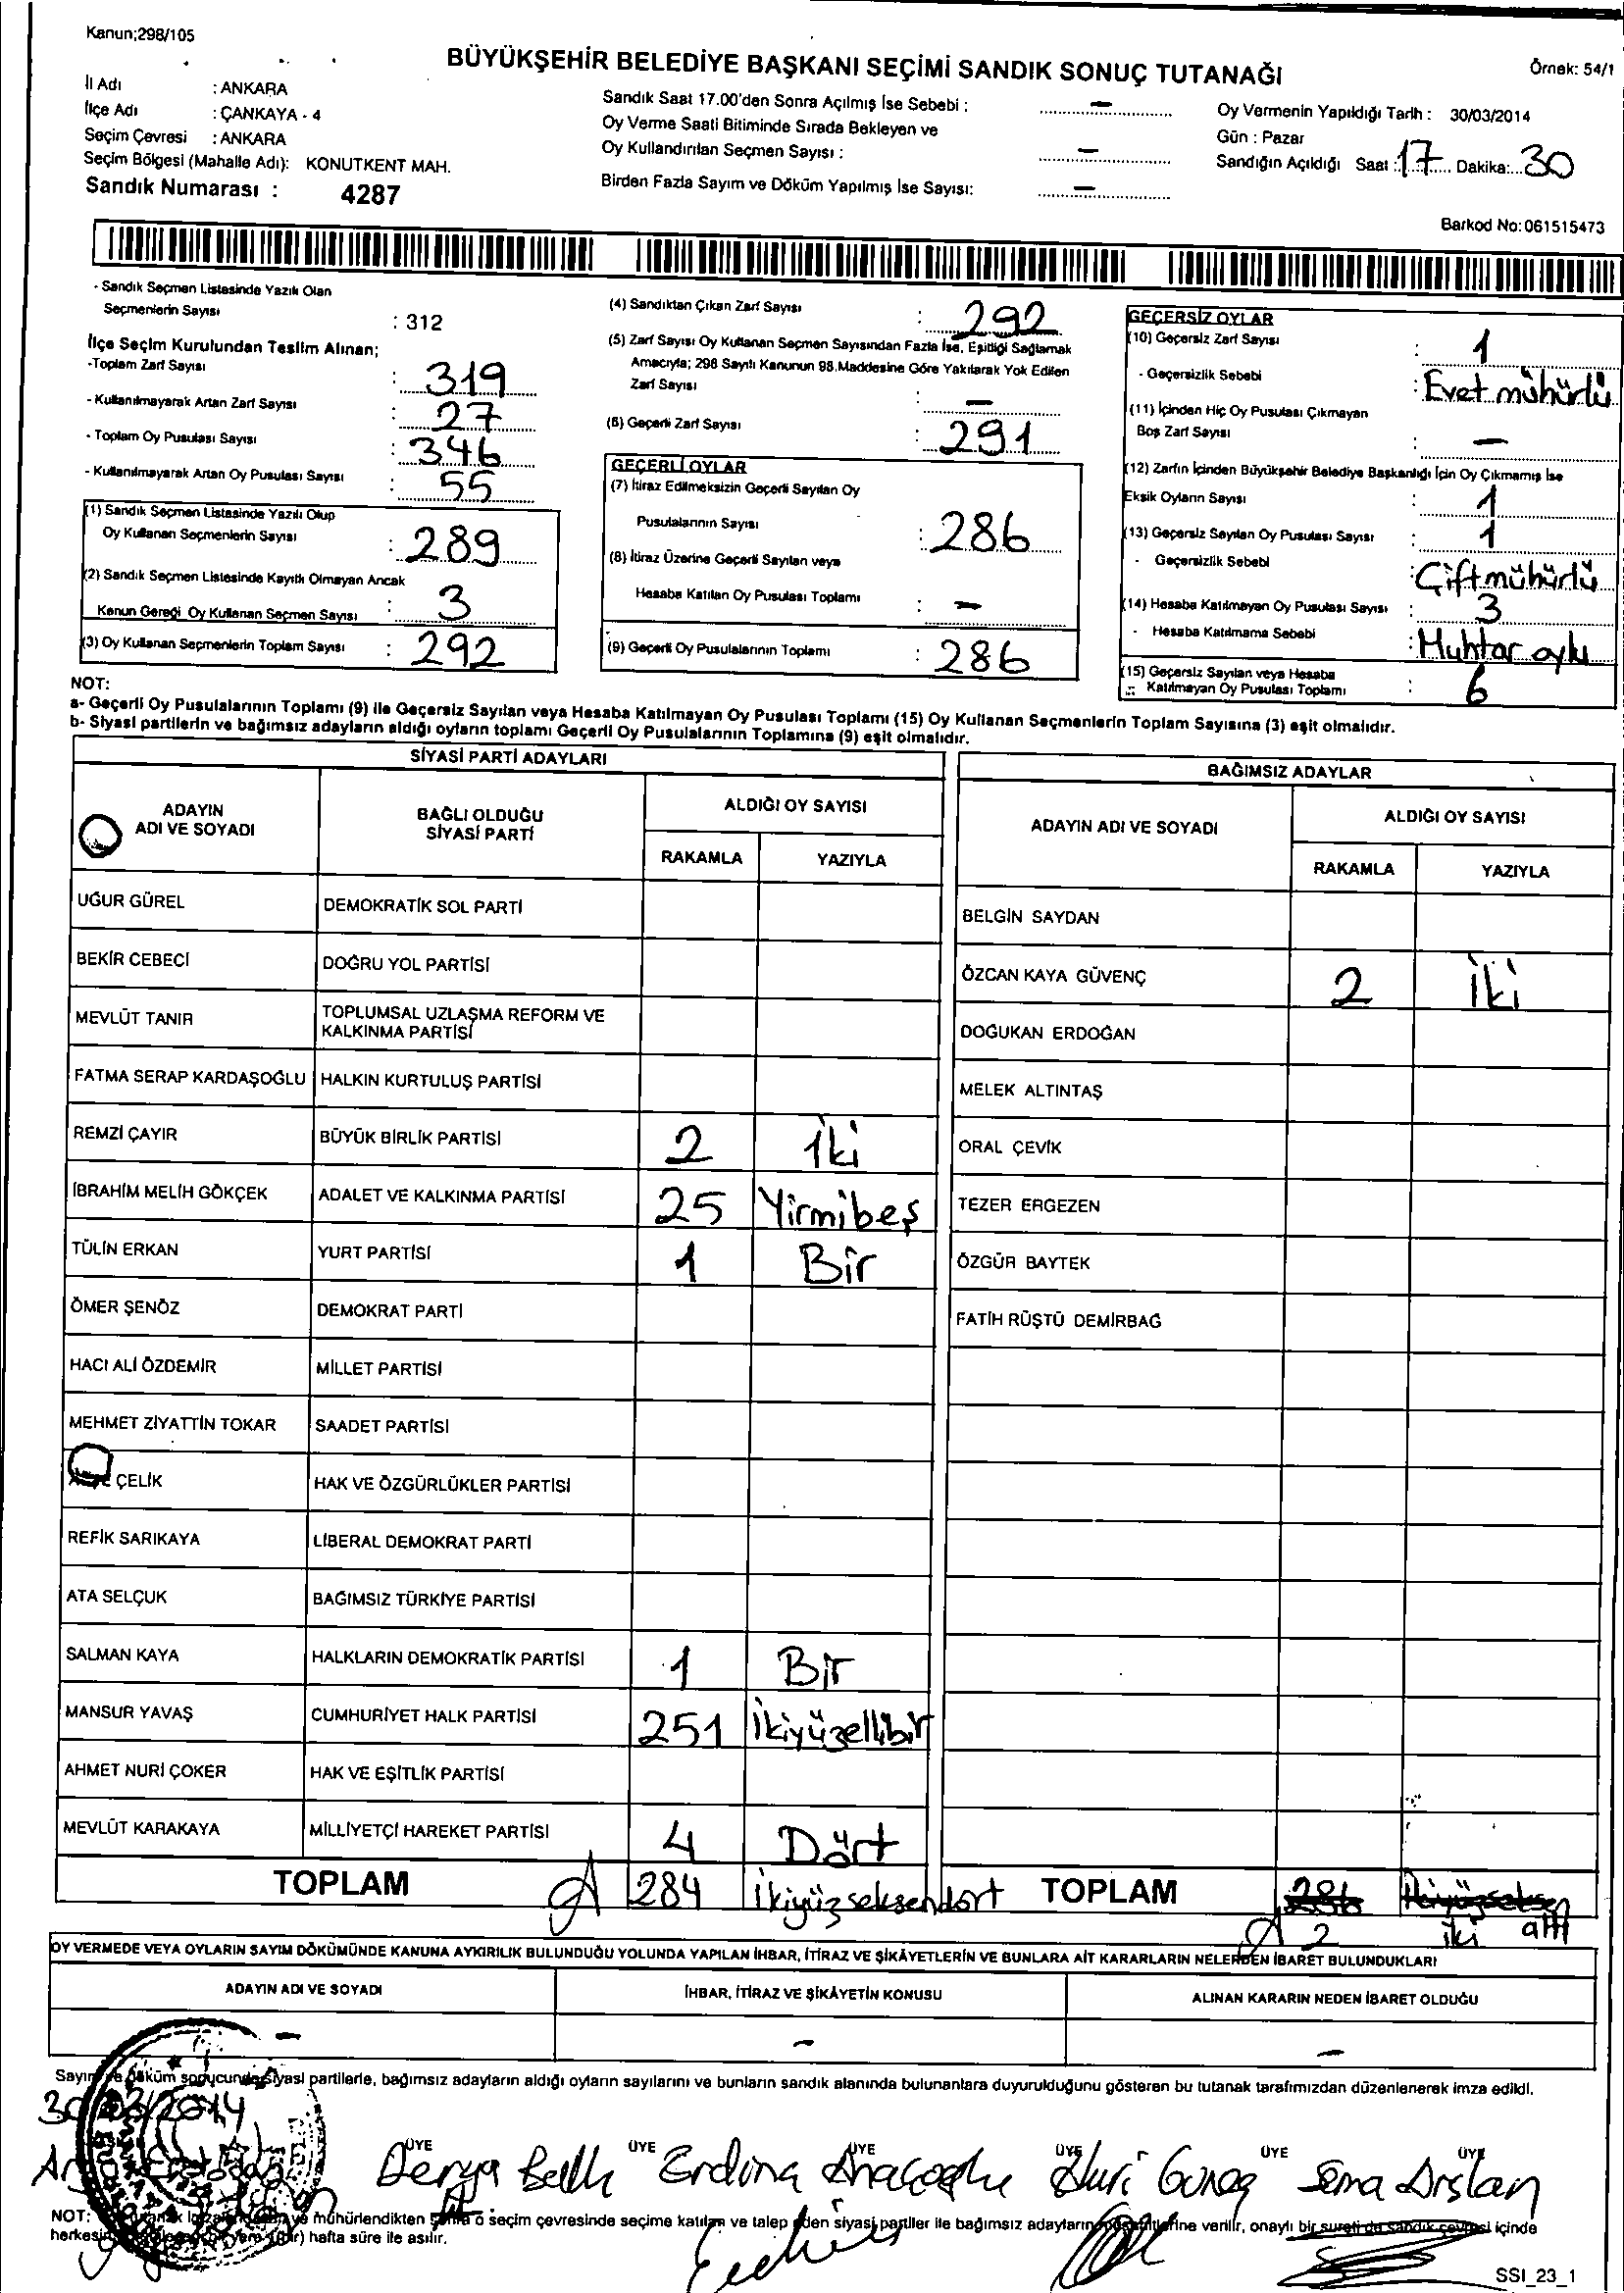 Kanun;298/105
BÜYÜKŞEHİR BELEDİYE BAŞKANI SEÇİMİ SANDIK SONUÇ TUTANAĞI
Örnek: 54/1
İl Adı : ANKARA
İlçe Adı : ÇANKAYA - 4
Seçim Çevresi : ANKARA
Seçim Bölgesi (Mahalle Adı): KONUTKENT MAH.
Sandık Numarası : 4287
Sandık Saat 17.00'den Sonra Açılmış İse Sebebi : –
Oy Verme Saati Bitiminde Sırada Bekleyen ve
Oy Kullandırılan Seçmen Sayısı : –
Birden Fazla Sayım ve Döküm Yapılmış İse Sayısı: –
Oy Vermenin Yapıldığı Tarih : 30/03/2014
Gün : Pazar
Sandığın Açıldığı Saat :17 Dakika:30
Barkod No:061515473
- Sandık Seçmen Listesinde Yazılı Olan
Seçmenlerin Sayısı : 312
İlçe Seçim Kurulundan Teslim Alınan;
-Toplam Zarf Sayısı : 319
- Kullanılmayarak Artan Zarf Sayısı : 27
- Toplam Oy Pusulası Sayısı : 346
- Kullanılmayarak Artan Oy Pusulası Sayısı : 55
(1) Sandık Seçmen Listesinde Yazılı Olup
Oy Kullanan Seçmenlerin Sayısı : 289
(2) Sandık Seçmen Listesinde Kayıtlı Olmayan Ancak
Kanun Gereği Oy Kullanan Seçmen Sayısı : 3
(3) Oy Kullanan Seçmenlerin Toplam Sayısı : 292
(4) Sandıktan Çıkan Zarf Sayısı : 292
(5) Zarf Sayısı Oy Kullanan Seçmen Sayısından Fazla İse, Eşitliği Sağlamak
Amacıyla; 298 Sayılı Kanunun 98.Maddesine Göre Yakılarak Yok Edilen
Zarf Sayısı : –
(6) Geçerli Zarf Sayısı : 291
GEÇERLİ OYLAR
(7) İtiraz Edilmeksizin Geçerli Sayılan Oy
Pusulalarının Sayısı : 286
(8) İtiraz Üzerine Geçerli Sayılan veya
Hesaba Katılan Oy Pusulası Toplamı : –
(9) Geçerli Oy Pusulalarının Toplamı : 286
GEÇERSİZ OYLAR
(10) Geçersiz Zarf Sayısı : 1
- Geçersizlik Sebebi : Evet mühürlü
(11) İçinden Hiç Oy Pusulası Çıkmayan
Boş Zarf Sayısı : –
(12) Zarfın İçinden Büyükşehir Belediye Başkanlığı İçin Oy Çıkmamış İse
Eksik Oyların Sayısı : 1
(13) Geçersiz Sayılan Oy Pusulası Sayısı : 1
- Geçersizlik Sebebi : Çift mühürlü
(14) Hesaba Katılmayan Oy Pusulası Sayısı : 3
- Hesaba Katılmama Sebebi : Muhtar oylu
(15) Geçersiz Sayılan veya Hesaba
Katılmayan Oy Pusulası Toplamı : 6
NOT:
a- Geçerli Oy Pusulalarının Toplamı (9) ile Geçersiz Sayılan veya Hesaba Katılmayan Oy Pusulası Toplamı (15) Oy Kullanan Seçmenlerin Toplam Sayısına (3) eşit olmalıdır.
b- Siyasi partilerin ve bağımsız adayların aldığı oyların toplamı Geçerli Oy Pusulalarının Toplamına (9) eşit olmalıdır.
SİYASİ PARTİ ADAYLARI
ADAYIN ADI VE SOYADI BAĞLI OLDUĞU SİYASİ PARTİ ALDIĞI OY SAYISI
RAKAMLA YAZIYLA
UĞUR GÜREL DEMOKRATİK SOL PARTİ
BEKİR CEBECİ DOĞRU YOL PARTİSİ
MEVLÜT TANIR TOPLUMSAL UZLAŞMA REFORM VE KALKINMA PARTİSİ
FATMA SERAP KARDAŞOĞLU HALKIN KURTULUŞ PARTİSİ
REMZİ ÇAYIR BÜYÜK BİRLİK PARTİSİ 2 İki
İBRAHİM MELİH GÖKÇEK ADALET VE KALKINMA PARTİSİ 25 Yirmibeş
TÜLİN ERKAN YURT PARTİSİ 1 Bir
ÖMER ŞENÖZ DEMOKRAT PARTİ
HACI ALİ ÖZDEMİR MİLLET PARTİSİ
MEHMET ZİYATTİN TOKAR SAADET PARTİSİ
ÇELİK HAK VE ÖZGÜRLÜKLER PARTİSİ
REFİK SARIKAYA LİBERAL DEMOKRAT PARTİ
ATA SELÇUK BAĞIMSIZ TÜRKİYE PARTİSİ
SALMAN KAYA HALKLARIN DEMOKRATİK PARTİSİ 1 Bir
MANSUR YAVAŞ CUMHURİYET HALK PARTİSİ 251 İkiyüzellibir
AHMET NURİ ÇOKER HAK VE EŞİTLİK PARTİSİ
MEVLÜT KARAKAYA MİLLİYETÇİ HAREKET PARTİSİ 4 Dört
TOPLAM 284 İkiyüzseksendört
BAĞIMSIZ ADAYLAR
ADAYIN ADI VE SOYADI ALDIĞI OY SAYISI
RAKAMLA YAZIYLA
BELGİN SAYDAN
ÖZCAN KAYA GÜVENÇ 2 İki
DOĞUKAN ERDOĞAN
MELEK ALTINTAŞ
ORAL ÇEVİK
TEZER ERGEZEN
ÖZGÜR BAYTEK
FATİH RÜŞTÜ DEMİRBAĞ
TOPLAM 286 İkiyüzseksen altı
2 iki
OY VERMEDE VEYA OYLARIN SAYIM DÖKÜMÜNDE KANUNA AYKIRILIK BULUNDUĞU YOLUNDA YAPILAN İHBAR, İTİRAZ VE ŞİKÂYETLERİN VE BUNLARA AİT KARARLARIN NELERDEN İBARET BULUNDUKLARI
ADAYIN ADI VE SOYADI İHBAR, İTİRAZ VE ŞİKÂYETİN KONUSU ALINAN KARARIN NEDEN İBARET OLDUĞU
– – –
Sayım ve döküm sonucunda siyasi partilerle, bağımsız adayların aldığı oyların sayılarını ve bunların sandık alanında bulunanlara duyurulduğunu gösteren bu tutanak tarafımızdan düzenlenerek imza edildi.
30/03/2014
ÜYE ÜYE ÜYE ÜYE ÜYE ÜYE
Derya Erdinç Nuri Güneş Sema Arslan
NOT: mühürlendikten sonra o seçim çevresinde seçime katılan ve talep eden siyasi partiler ile bağımsız adayların verilir, onaylı bir sureti de sandık çevresi içinde
hafta süre ile asılır.
SSI_23_1